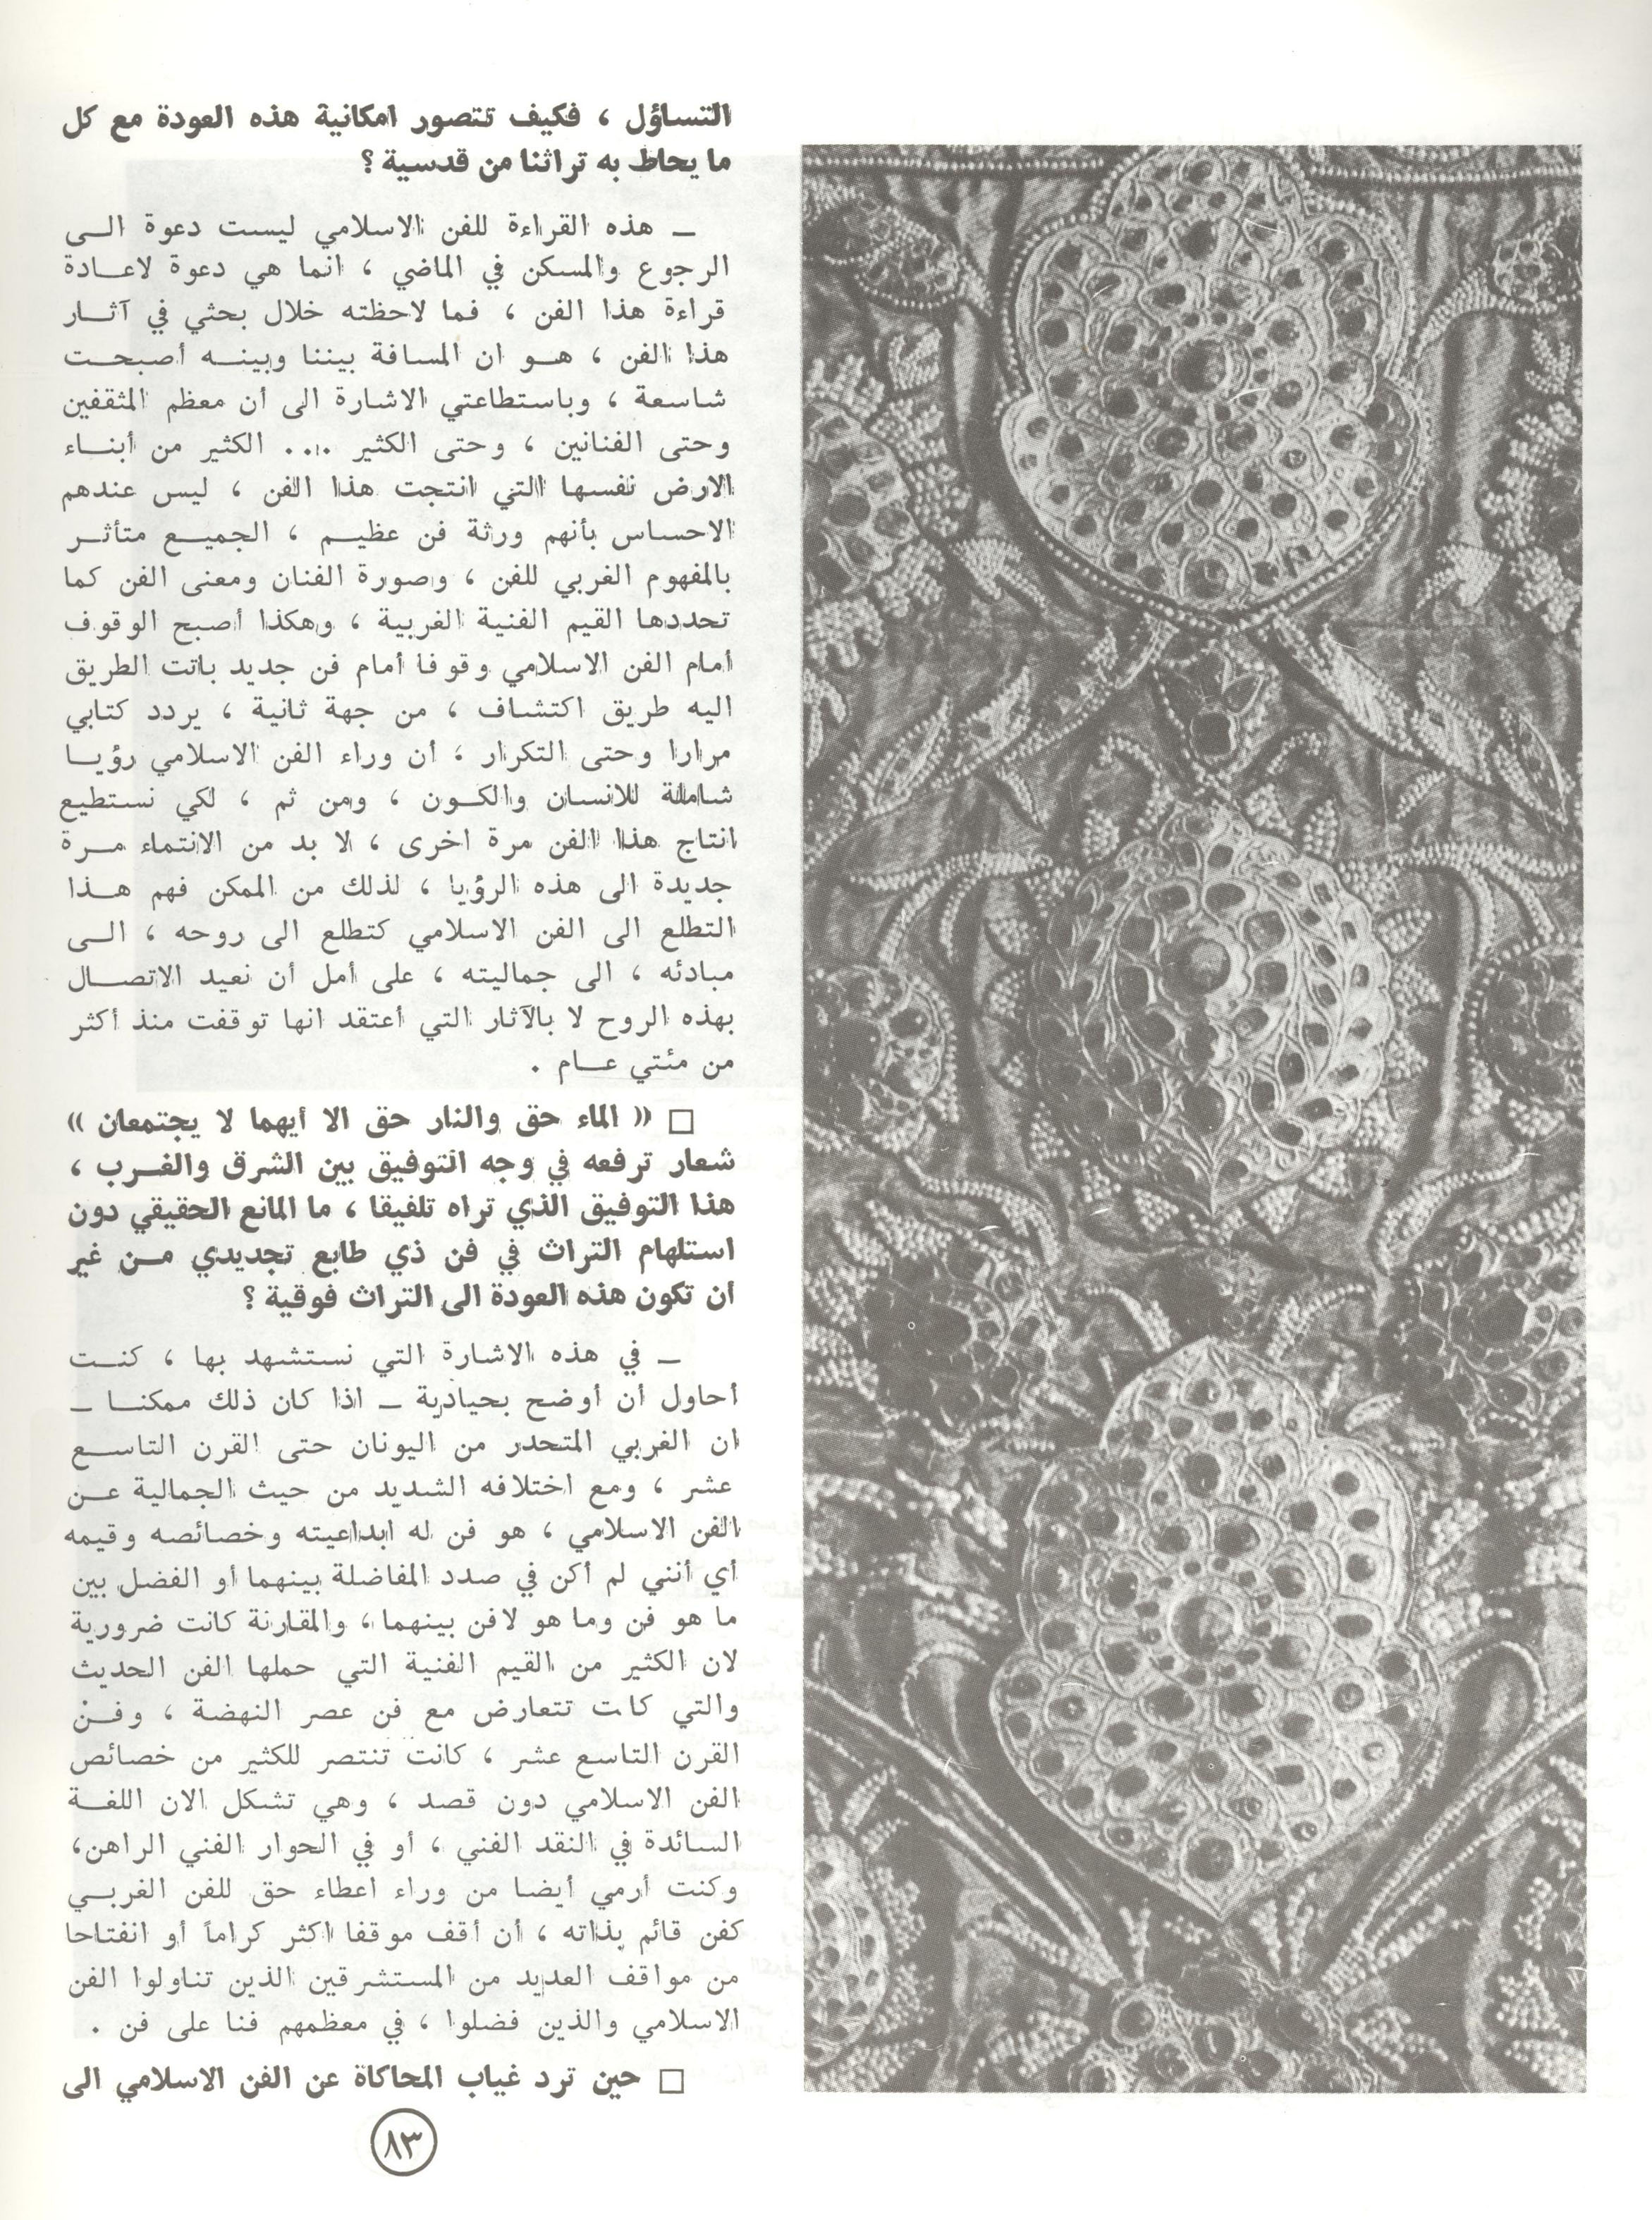 التساؤل ، فكيف تتصور امكانية هذه العودة مع كل
ما يحاط به تراثنا من قدسية ؟
ـ هذه القراءة للفن الاسلامي ليست دعوة الـى
الرجوع والمسكن في الماضي ، انما هي دعوة لاعـادة
قراءة هذا الفن ، فما لاحظته خلال بحثي في آثـار
هذا الفن ، هـو ان المسافة بيننا وبينـه أصبحـت
شاسعة ، وباستطاعتي الاشارة الى أن معظم المثقفين
وحتى الفنانين ، وحتى الكثير .... الكثير من أبنـاء
الارض نفسها التي انتجت هذا الفن ، ليس عندهم
الاحساس بأنهم ورثة فن عظيـم ، الجميـع متأثـر
بالمفهوم الغربي للفن ، وصورة الفنان ومعنى الفن كما
تحددها القيم الفنية الغربية ، وهكذا أصبح الوقوف
أمام الفن الاسلامي وقوفا أمام فن جديد باتت الطريق
اليه طريق اكتشاف ، من جهة ثانية ، يردد كتابي
مرارا وحتى التكرار ، أن وراء الفن الاسلامي رؤيـا
شاملة للانسان والكـون ، ومن ثم ، لكي نستطيع
انتاج هذا الفن مرة اخرى ، لا بد من الانتماء مـرة
جديدة الى هذه الرؤيا ، لذلك من الممكن فهم هـذا
التطلع الى الفن الاسلامي كتطلع الى روحه ، الـى
مبادئه ، الى جماليته ، على أمل أن نعيد الاتصـال
بهذه الروح لا بالآثار التي أعتقد انها توقفت منذ أكثر
من مئتي عـام .
□ « الماء حق والنار حق الا أيهما لا يجتمعان »
شعار ترفعه في وجه التوفيق بين الشرق والغـرب ،
هذا التوفيق الذي تراه تلفيقا ، ما المانع الحقيقي دون
استلهام التراث في فن ذي طابع تجديدي مـن غير
ان تكون هذه العودة الى التراث فوقية ؟
ـ في هذه الاشارة التي نستشهد بها ، كنـت
أحاول أن أوضح بحيادية ـ اذا كان ذلك ممكنـا ـ
ان الغربي المتحدر من اليونان حتى القرن التاسـع
عشر ، ومع اختلافه الشديد من حيث الجمالية عـن
الفن الاسلامي ، هو فن له ابداعيته وخصائصه وقيمه
أي أنني لم أكن في صدد المفاضلة بينهما أو الفضل بين
ما هو فن وما هو لافن بينهما ، والمقارنة كانت ضرورية
لان الكثير من القيم الفنية التي حملها الفن الحديث
والتي كات تتعارض مع فن عصر النهضة ، وفـنْ
القرن التاسع عشر ، كانت تنتصر للكثير من خصائص
الفن الاسلامي دون قصد ، وهي تشكل الان اللغـة
السائدة في النقد الفني ، أو في الحوار الفني الراهن،
وكنت أرمي أيضا من وراء اعطاء حق للفن الغربـي
كفن قائم بذاته ، أن أقف موقفا اكثر كراماً أو انفتاحا
من مواقف العديد من المستشرقين الذين تناولوا الفن
الاسلامي والذين فضلوا ، في معظمهم فنا على فن .
□ حين ترد غياب المحاكاة عن الفن الاسلامي الى
٨٣